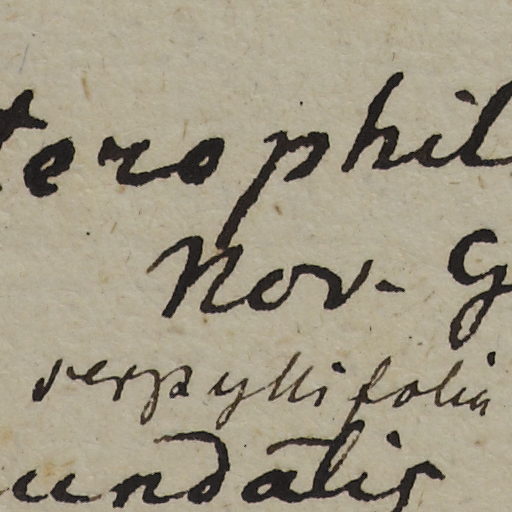 terophil
Nov. G
serpyllifolia
undalis